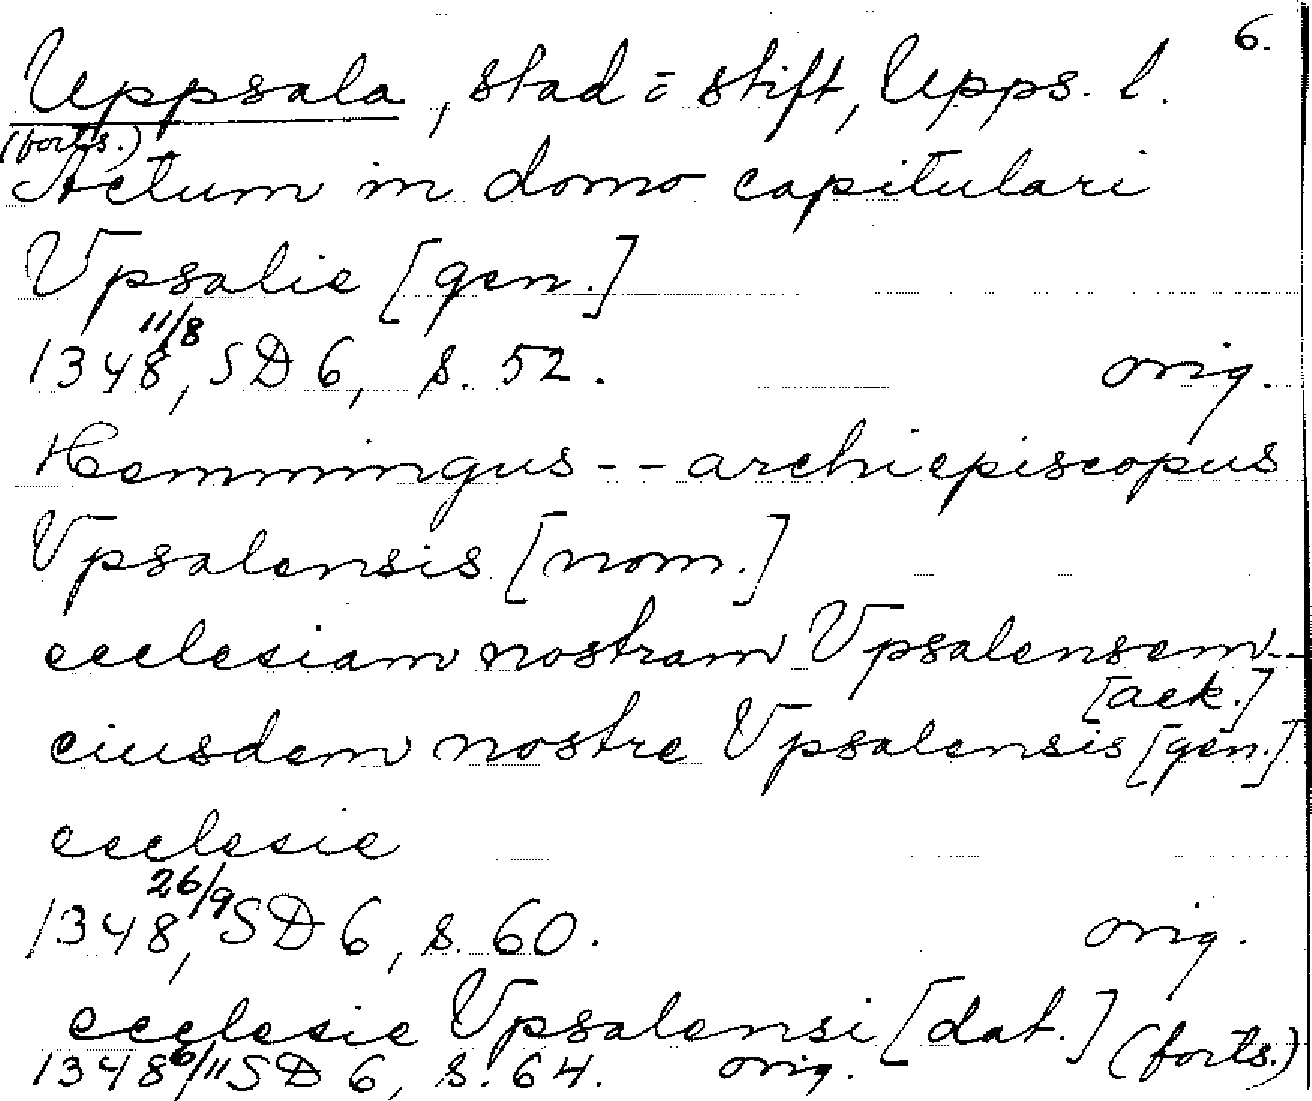 6.
Uppsala, stad = stift, Upps. l.
(forts.)
Actum in domo capitulari
Vpsalie [gen.]
1348 11/8, SD 6, s. 52. orig.
Hemmingus - - archiepiscopus
Vpsalensis [nom.]
ecclesiam nostram Vpsalensem - -
[ack.]
eiusdem nostre Vpsalensis [gen.]
ecclesie
1348 26/9, SD 6, s. 60. orig.
ecclesie Vpsalensi [dat.] (forts.)
1348 6/11 SD 6, s. 64. orig.